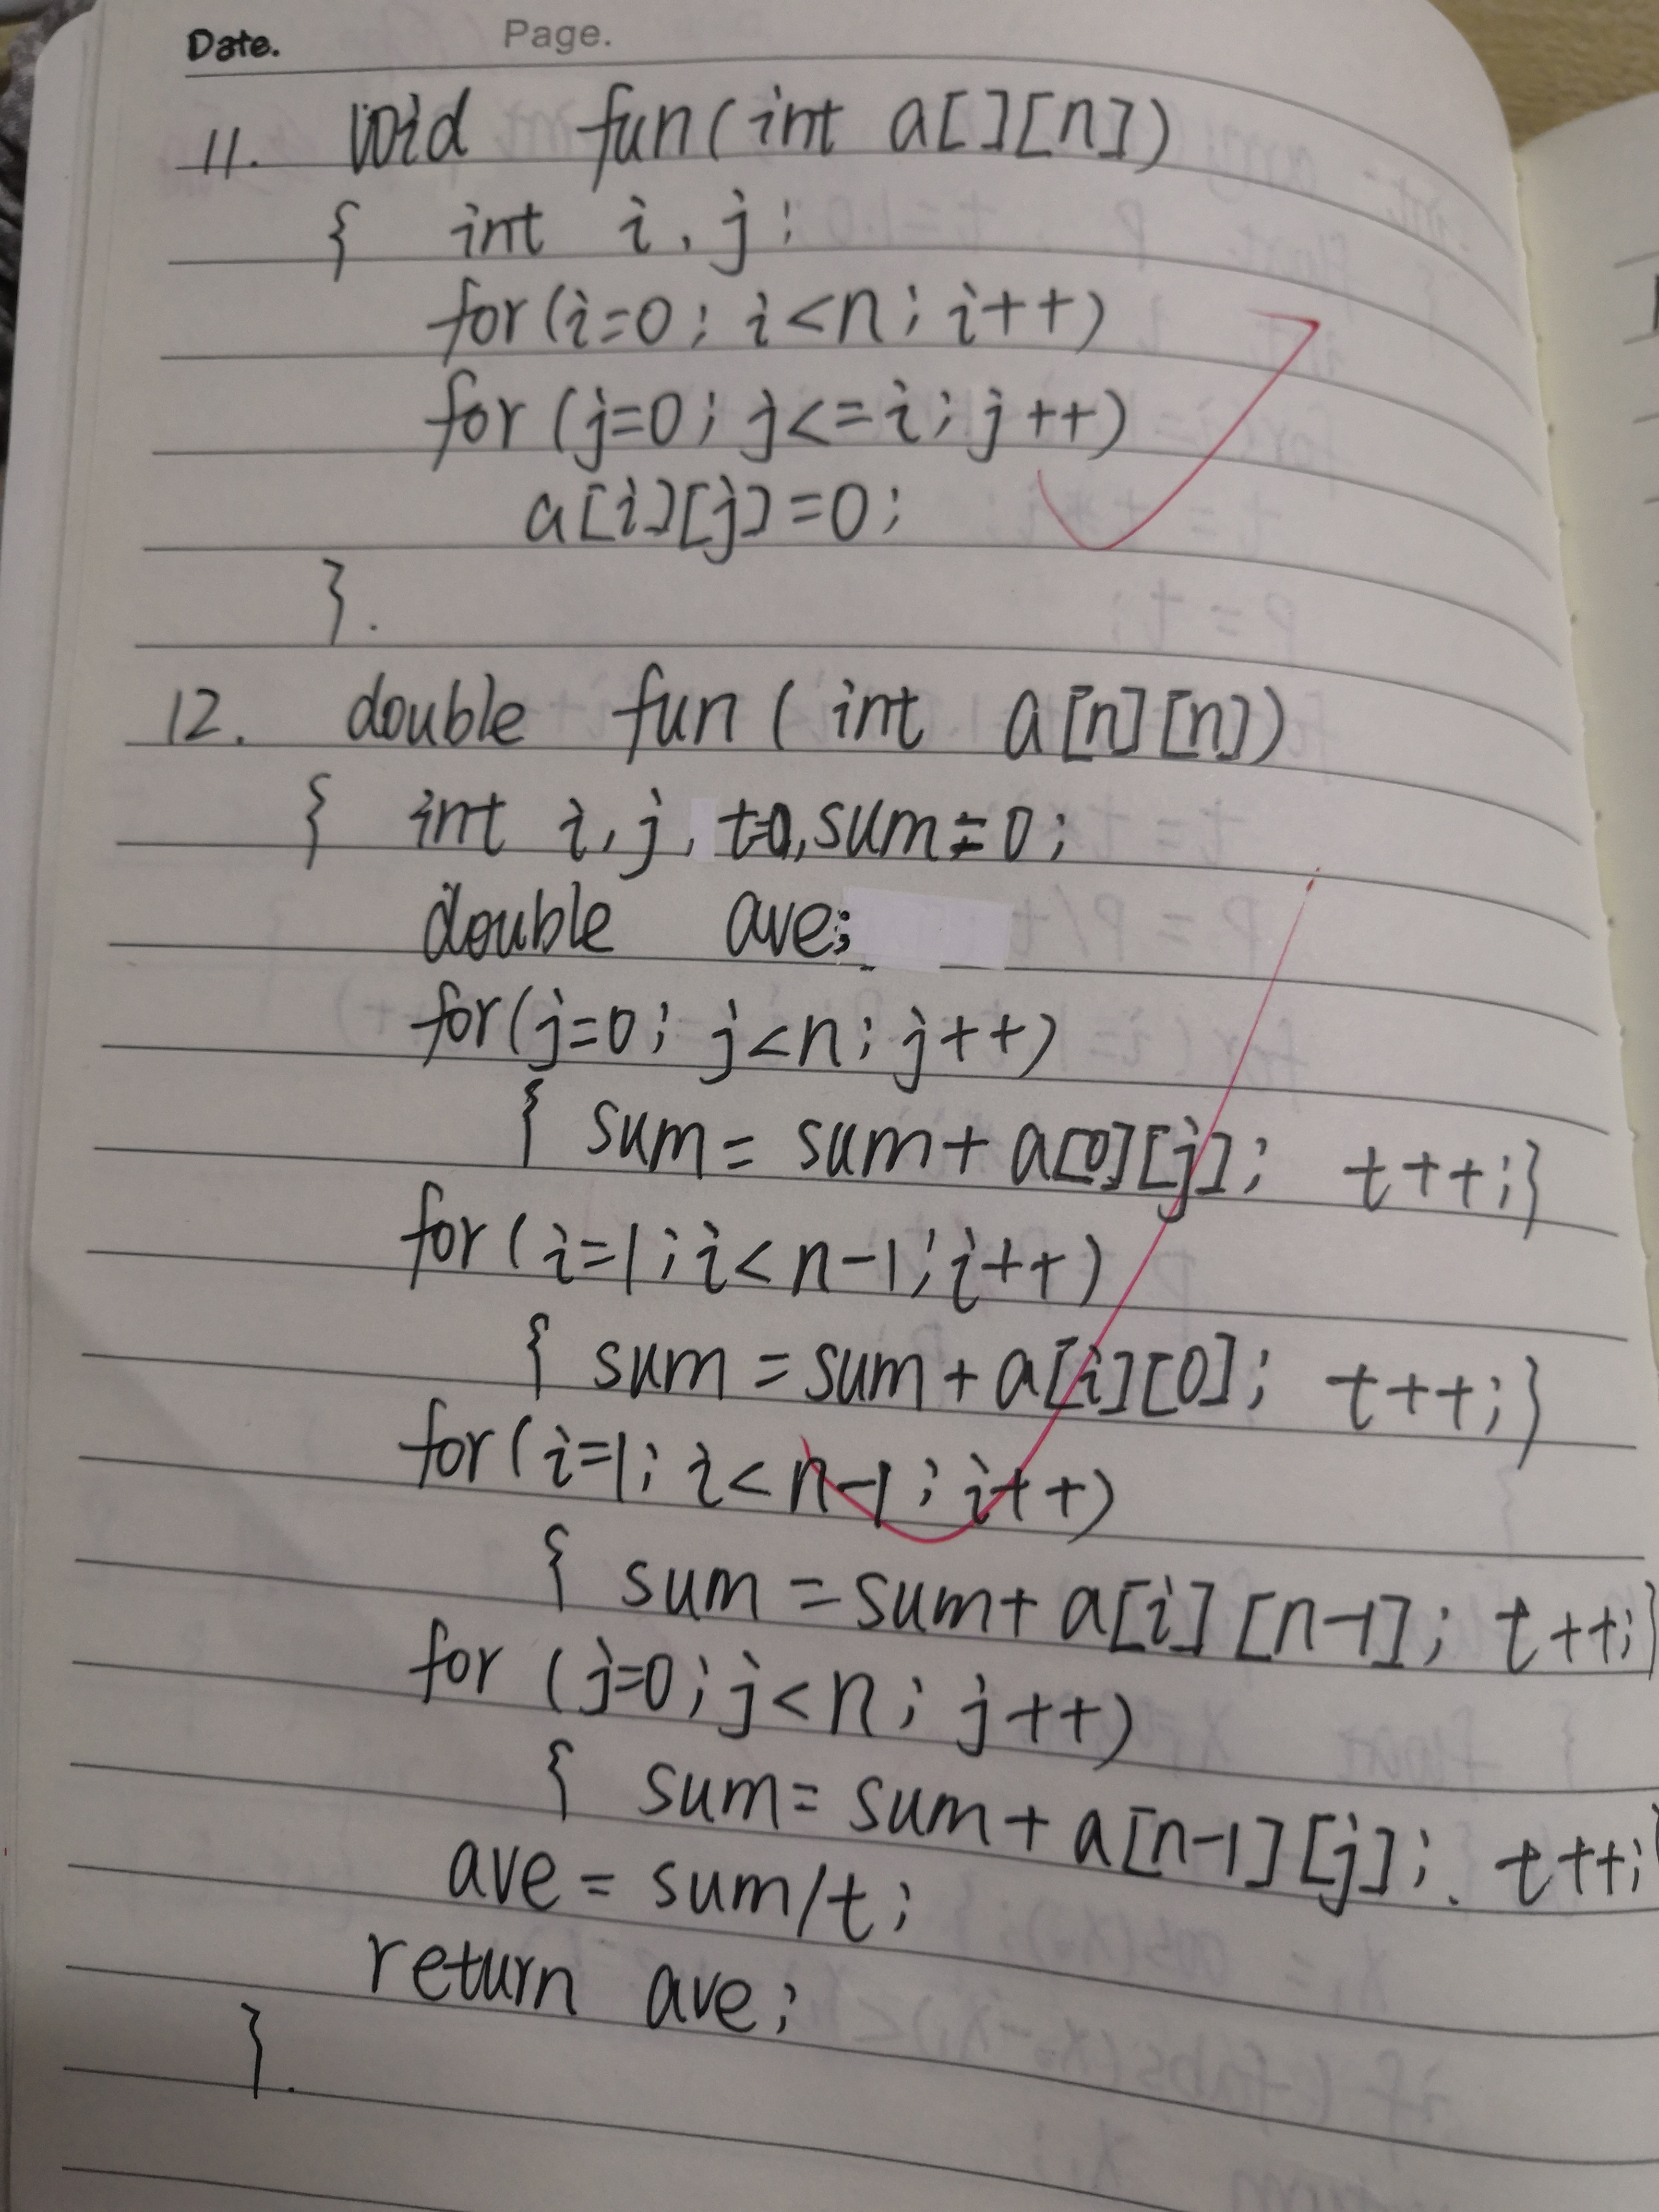 Date. Page.
11. void fun(int a[][n])
{ int i, j;
for(i=0; i<n; i++)
for(j=0; j<=i; j++)
a[i][j]=0;
}.
12. double fun(int a[n][n])
{ int i, j, t=0, sum=0;
double ave;
for(j=0; j<n; j++)
{ sum = sum+a[0][j]; t++;}
for(i=1; i<n-1; i++)
{ sum = sum+a[i][0]; t++;}
for(i=1; i<n-1; i++)
{ sum = sum+a[i][n-1]; t++;}
for (j=0; j<n; j++)
{ sum = sum+a[n-1][j]; t++;}
ave = sum/t;
return ave;
}.